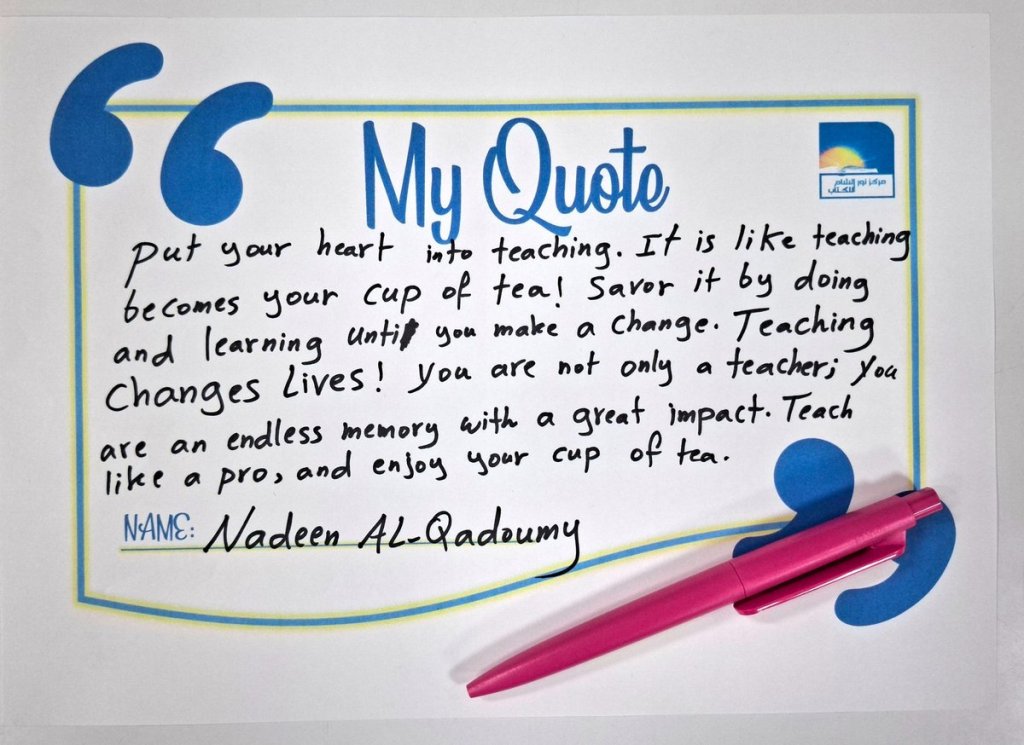 My Quote
مركز نور الشام
للكتاب
Put your heart into teaching. It is like teaching
becomes your cup of tea! Savor it by doing
and learning until you make a change. Teaching
Changes Lives! You are not only a teacher; you
are an endless memory with a great impact. Teach
like a pro, and enjoy your cup of tea.
NAME: Nadeen AL-Qadoumy